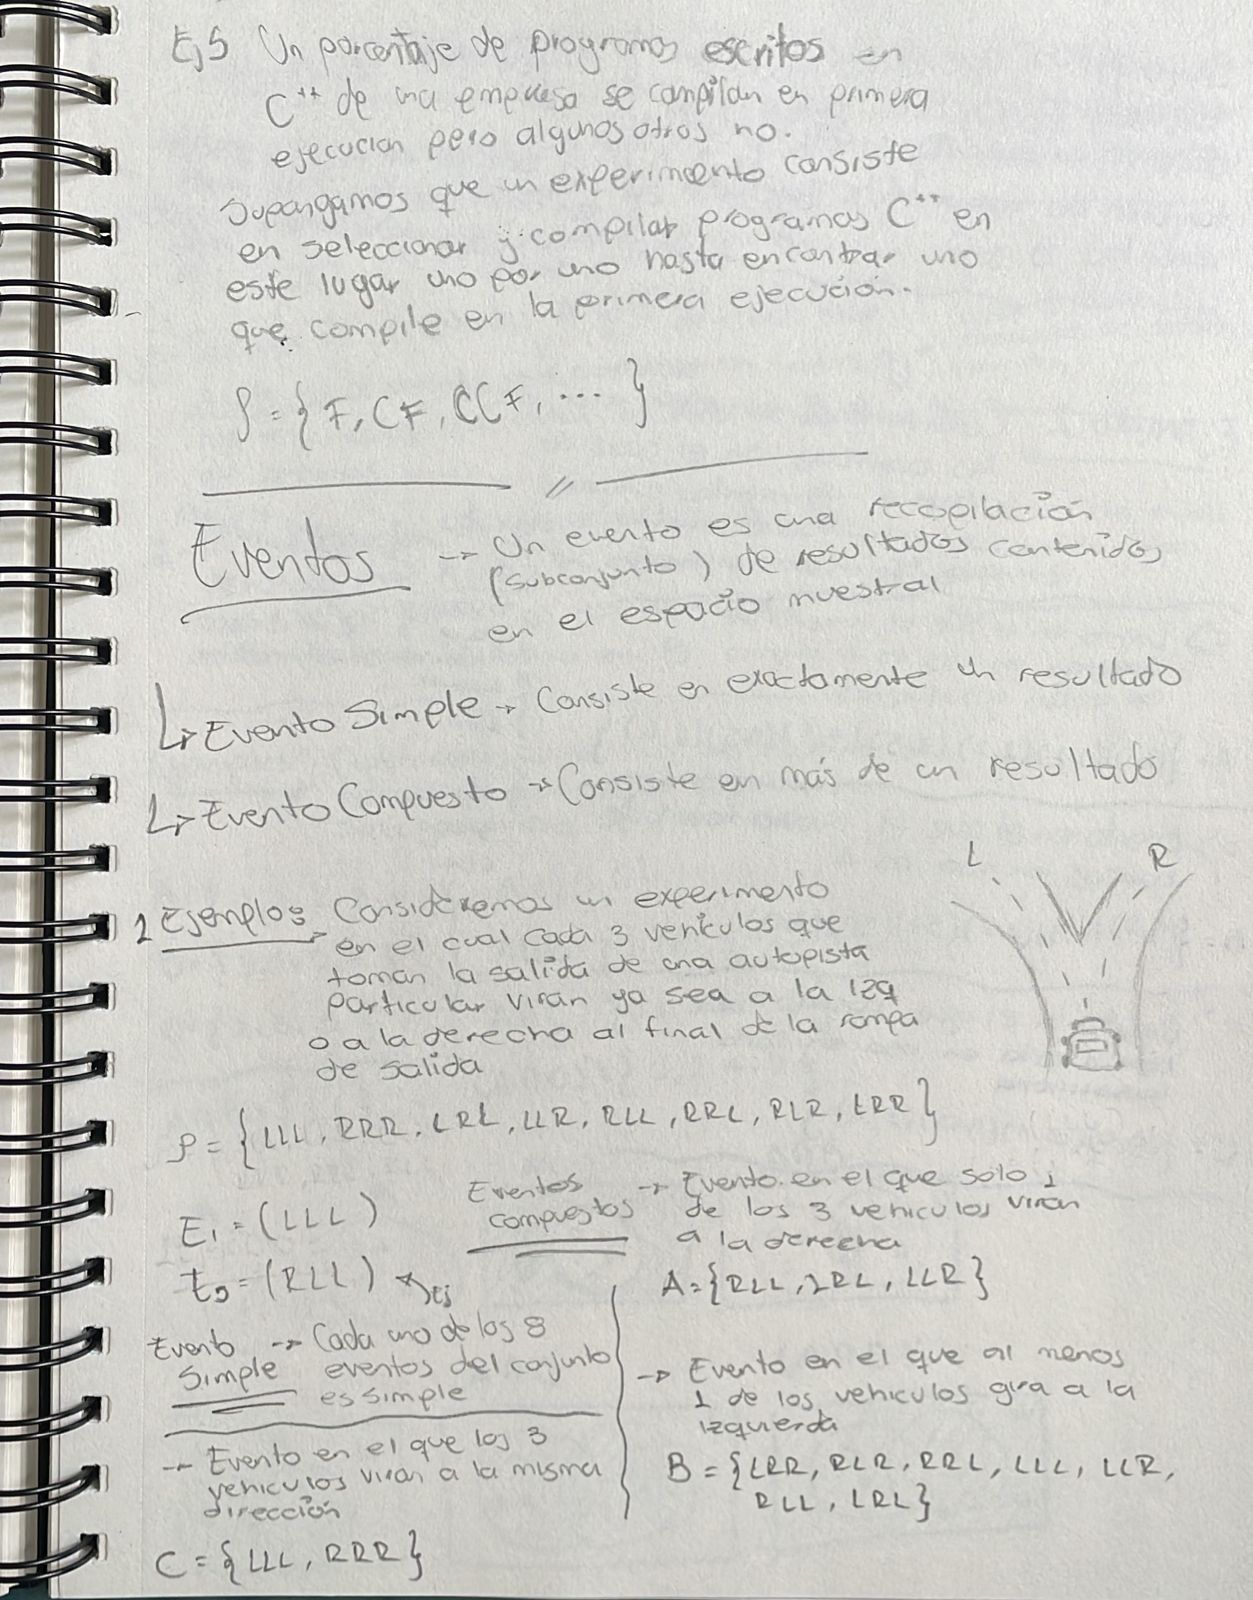 Ej 5 Un porcentaje de programas escritos en
C++ de una empresa se compilan en primera
ejecución pero algunos otros no.
Supongamos que un experimento consiste
en seleccionar y compilar programas C++ en
este lugar uno por uno hasta encontrar uno
que compile en la primera ejecución.
S = { F, CF, CCF, ... }
Eventos → Un evento es una recopilación
(subconjunto) de resultados contenidos
en el espacio muestral
↳ Evento Simple → Consiste en exactamente un resultado
↳ Evento Compuesto → Consiste en más de un resultado
L R
1 Ejemplo: Consideremos un experimento
en el cual cada 3 vehiculos que
toman la salida de una autopista
particular viran ya sea a la izq
o a la derecha al final de la rampa
de salida
S = { LLL, RRR, LRL, LLR, RLL, RRL, RLR, LRR }
E1 = (LLL)
E5 = (RLL) Ej
Evento Simple → Cada uno de los 8
eventos del conjunto
es simple
→ Evento en el que los 3
vehiculos viran a la misma
dirección
C = { LLL, RRR }
Eventos compuestos → Evento en el que solo 1
de los 3 vehiculos viran
a la derecha
A = { RLL, LRL, LLR }
→ Evento en el que al menos
1 de los vehiculos gira a la
izquierda
B = { LRR, RLR, RRL, LLL, LLR,
RLL, LRL }